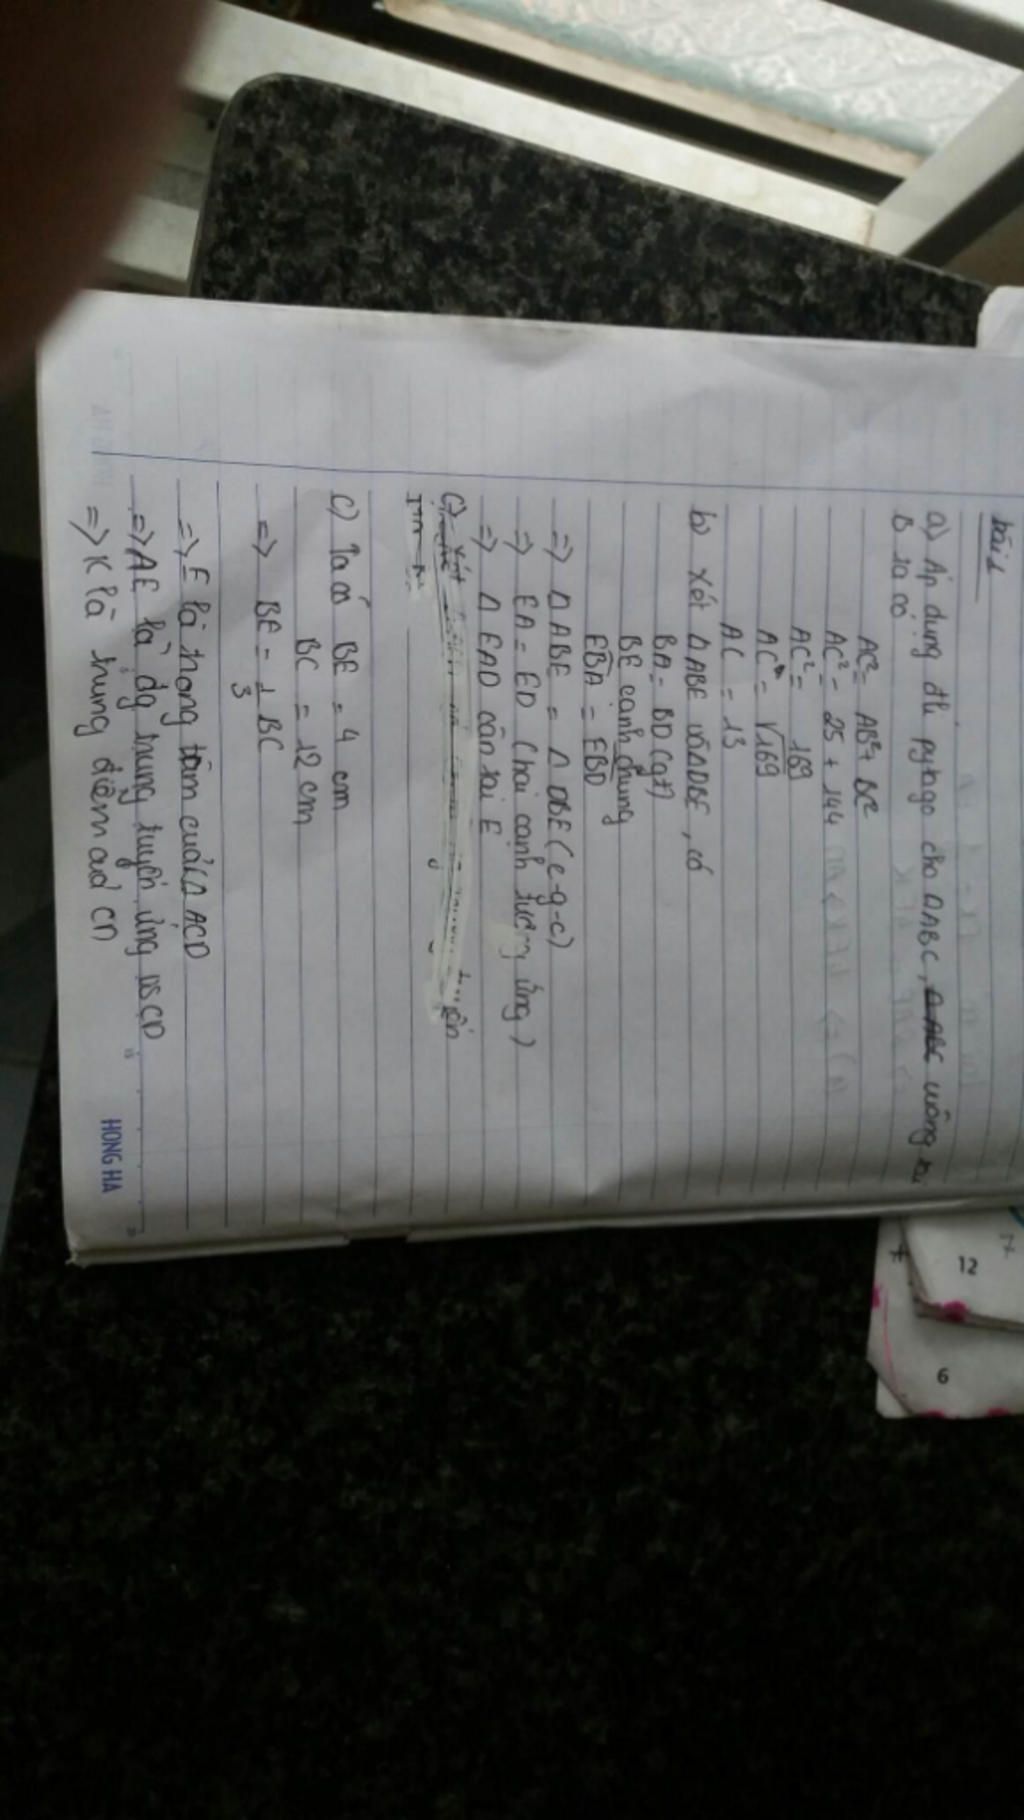 bài 1
a) Áp dụng đli pytago cho ΔABC, vuông tại
B ta có
AC² = AB² + BC²
AC² = 25 + 144
AC² = 169
AC = √169
AC = 13
b) Xét ΔABE và ΔDBE, có
BA = BD (gt)
BE cạnh chung
EBA = EBD
=> ΔABE = ΔDBE (c-g-c)
=> EA = ED (hai cạnh tương ứng)
=> ΔEAD cân tại E
c)
c) Ta có BE = 4 cm
BC = 12 cm
=> BE = 1/3 BC
=> E là trọng tâm của ΔACD
=> AE là đg trung tuyến ứng vs CD
=> K là trung điểm của CD
HONG HA
12
6